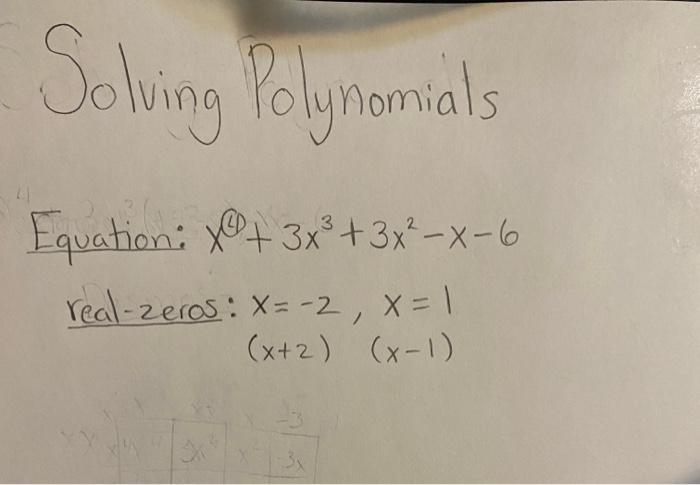 Solving Polynomials
Equation: x⁴ + 3x³ + 3x² - x - 6
real-zeros: x = -2, x = 1
(x+2) (x-1)
-3
3x² x² -3x